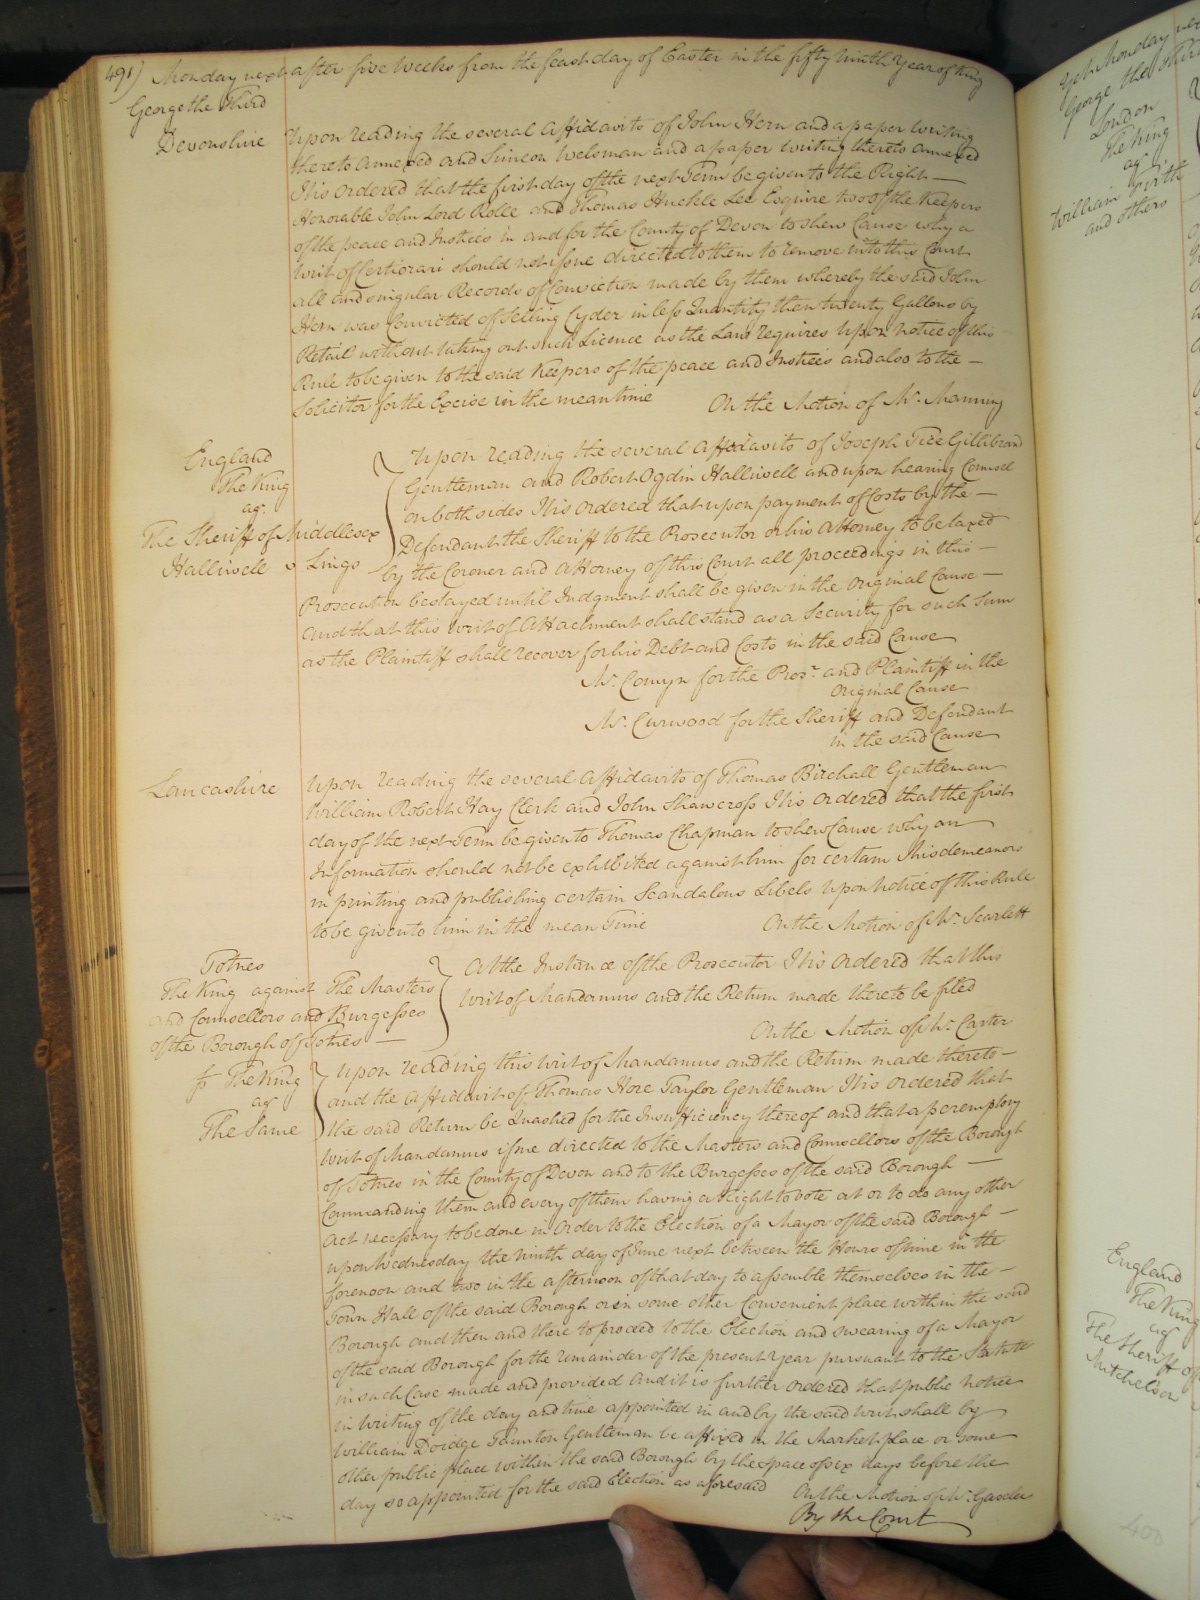 491) Monday next after five Weeks from the feast day of Easter in the fifty ninth Year of King
George the Third
Devonshire
Upon reading the several Affidavits of John Hern and a paper writing
thereto Annexed and Simeon Welsman and a paper writing thereto annexed
It is Ordered that the first day of the next Term be given to the Right —
Honorable John Lord Rolle and Thomas Huckle Lee Esquire two of the Keepers
of the peace and Justices in and for the County of Devon to shew Cause why a
Writ of Certiorari should not issue directed to them to remove into this Court
all and singular Records of Conviction made by them whereby the said John
Hern was Convicted of selling Cyder in less Quantity then twenty Gallons by
Retail without taking out such Licence as the Law requires Upon notice of this
Rule to be given to the said Keepers of the peace and Justices and also to the —
Solicitor for the Excise in the mean time
On the Motion of Mr. Manning
England
The King
agt.
The Sheriff of Middlesex
Halliwell v Lings
Upon reading the several Affidavits of Joseph Tice Gillibrand
Gentleman and Robert Ogdin Halliwell and upon hearing Counsel
on both sides It is Ordered that upon payment of Costs by the —
Defendant the Sheriff to the Prosecutor or his Attorney to be taxed
by the Coroner and Attorney of this Court all proceedings in this —
Prosecution be stayed until Judgment shall be given in the Original Cause —
and that this Writ of Attachment shall stand as a Security for such Sum
as the Plaintiff shall recover for his Debt and Costs in the said Cause
Mr. Comyn for the Pros.r and Plaintiff in the
Original Cause
Mr. Curwood for the Sheriff and Defendant
in the said Cause
Lancashire
Upon reading the several Affidavits of Thomas Birchall Gentleman
William Robert Hay Clerk and John Shawcross It is Ordered that the first
day of the next Term be given to Thomas Chapman to shew Cause why an
Information should not be exhibited against him for certain Misdemeanors
in printing and publishing certain Scandalous Libels Upon Notice of this Rule
to be given to him in the mean Time
On the Motion of Mr. Scarlett
Totnes
The King against The Masters
and Counsellors and Burgesses
of the Borough of Totnes —
At the Instance of the Prosecutor It is Ordered that this
Writ of Mandamus and the Return made thereto be filed
On the Motion of Mr. Carter
The King
agt
The Same
Upon reading this writ of Mandamus and the Return made thereto —
and the Affidavit of Thomas Hore Taylor Gentleman It is Ordered that
the said Return be Quashed for the Insufficiency thereof and that a peremptory
Writ of Mandamus issue directed to the Masters and Counsellors of the Borough
of Totnes in the County of Devon and to the Burgesses of the said Borough —
Commanding them and every of them having a Right to vote at or to do any other
Act necessary to be done in Order to the Election of a Mayor of the said Borough —
upon Wednesday the Ninth day of June next between the Hours of nine in the
forenoon and two in the afternoon of that day to assemble themselves in the —
Town Hall of the said Borough or in some other Convenient place within the said
Borough and then and there to proceed to the Election and swearing of a Mayor
of the said Borough for the remainder of the present Year pursuant to the Statute
in such Case made and provided And it is further Ordered that public Notice
in Writing of the day and time appointed in and by the said writ shall by
William Doidge Taunton Gentleman be affixed in the Market place or some
other public place within the said Borough by the space of six days before the
day so appointed for the said Election as aforesaid
On the Motion of Mr. Gaselee
By the Court
Yet Monday
George the Third
London
The King
agt
William Firth
and others
England
The King
agt
The Sheriff of
Mitchelson
400